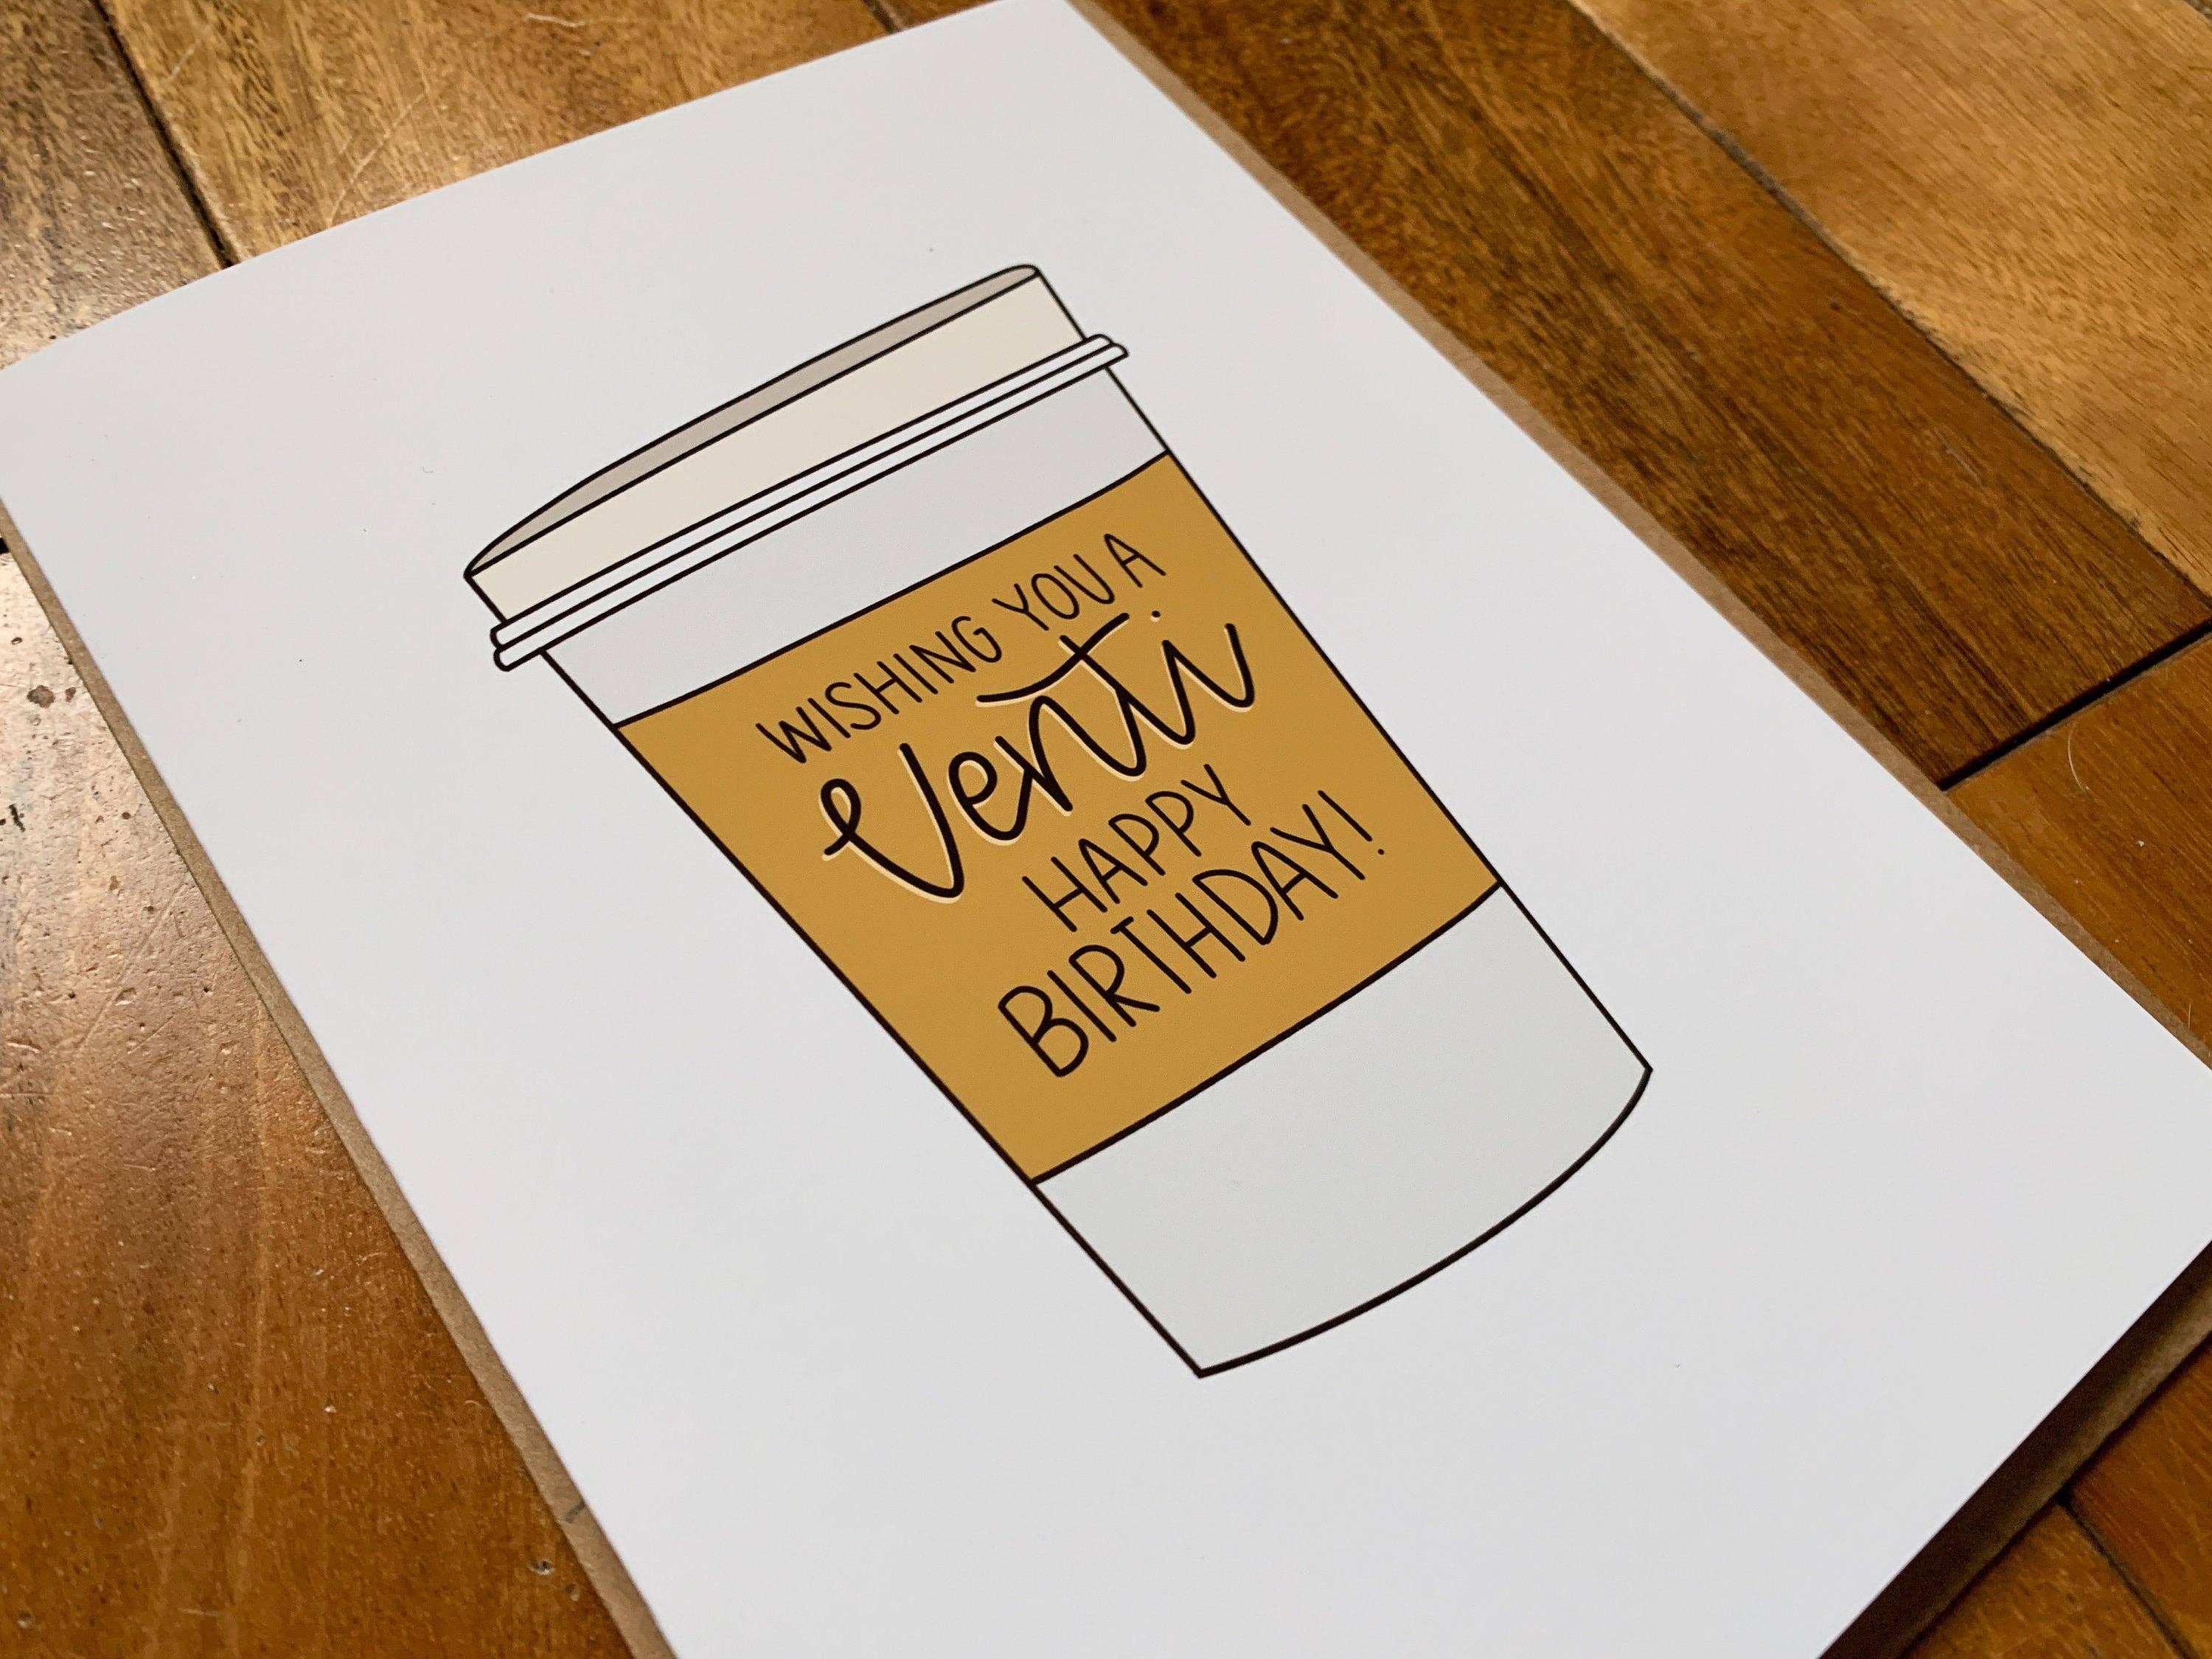 WISHING YOU A
Venti
HAPPY
BIRTHDAY!